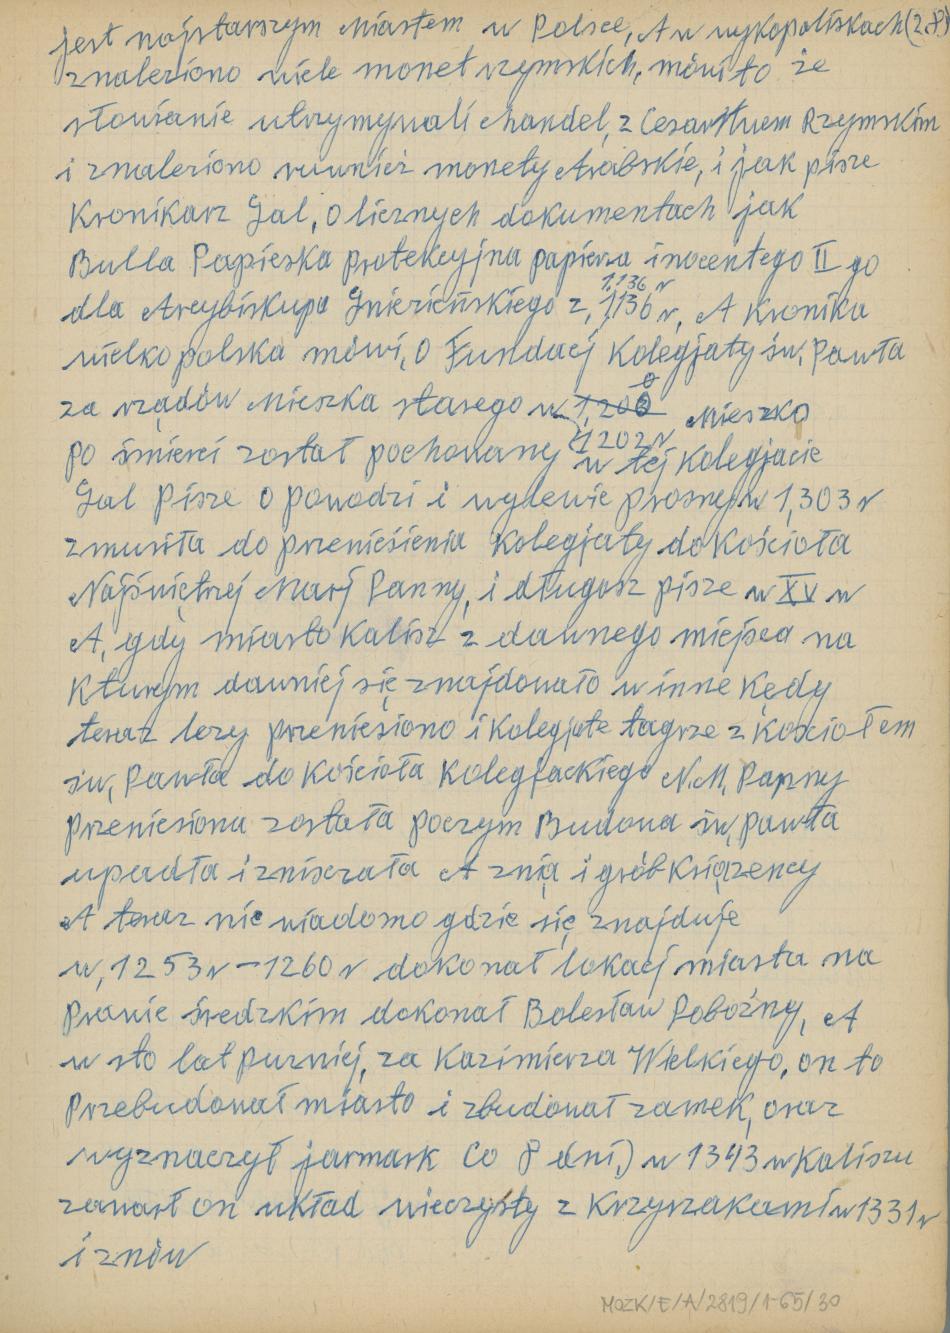 jest najstarszym Miastem w Polsce, A w wykopoliskach (28)
znaleziono wiele monet rzymskich, mówi to że
słowianie utrzymywali Chandel, z Cesarstwem Rzymskim
i znaleziono ruwnież monety Arabskie, i jak pisze
Kronikarz Gal, O licznych dokumentach jak
Bulla Papieska protekcyjna papierza inocentego II go
1,136 r
dla Arcybiskupa Gnieźnieńskiego z, 1136 r, A Kronika
wielkopolska mówi, O Fundacj Kolegjaty św, Pawła
za rządów Mieszka starego w 1,200 Mieszko
1202 r
po śmierci został pochowany w tej Kolegjacie
Gal Pisze O powodzi i wylewie prosny w 1,303 r
zmusiła do przeniesienia Kolegjaty do Kościoła
Najświętrzej Marj Panny, i długosz pisze w XV w
A, gdy miasto Kalisz z dawnego miejsca na
Kturym dawniej się znajdowało w inne Kędy
teraz leży przeniesiono i Kolegjate tagrze z kościołem
św, Pawła do Kościoła Kolegjackiego N.M, Panny
przeniesiona została poczym Budowa św, pawła
upadła i zniszczała A znią i grób Książency
A teraz nie wiadomo gdzie się znajduje
w, 1253 r – 1260 r dokonał lokacj miasta na
Prawie średzkim dokonał Bolesław Pobożny, A
w sto lat purniej, za Kazimierza Wielkiego, on to
Przebudował miasto i zbudował zamek, oraz
wyznaczył jarmark Co 8 dni,) w 1343 w Kaliszu
zawarł on układ wieczysty z Krzyrzakami w 1331 r
i znów
MOZK/E/A/2819/1-65/30